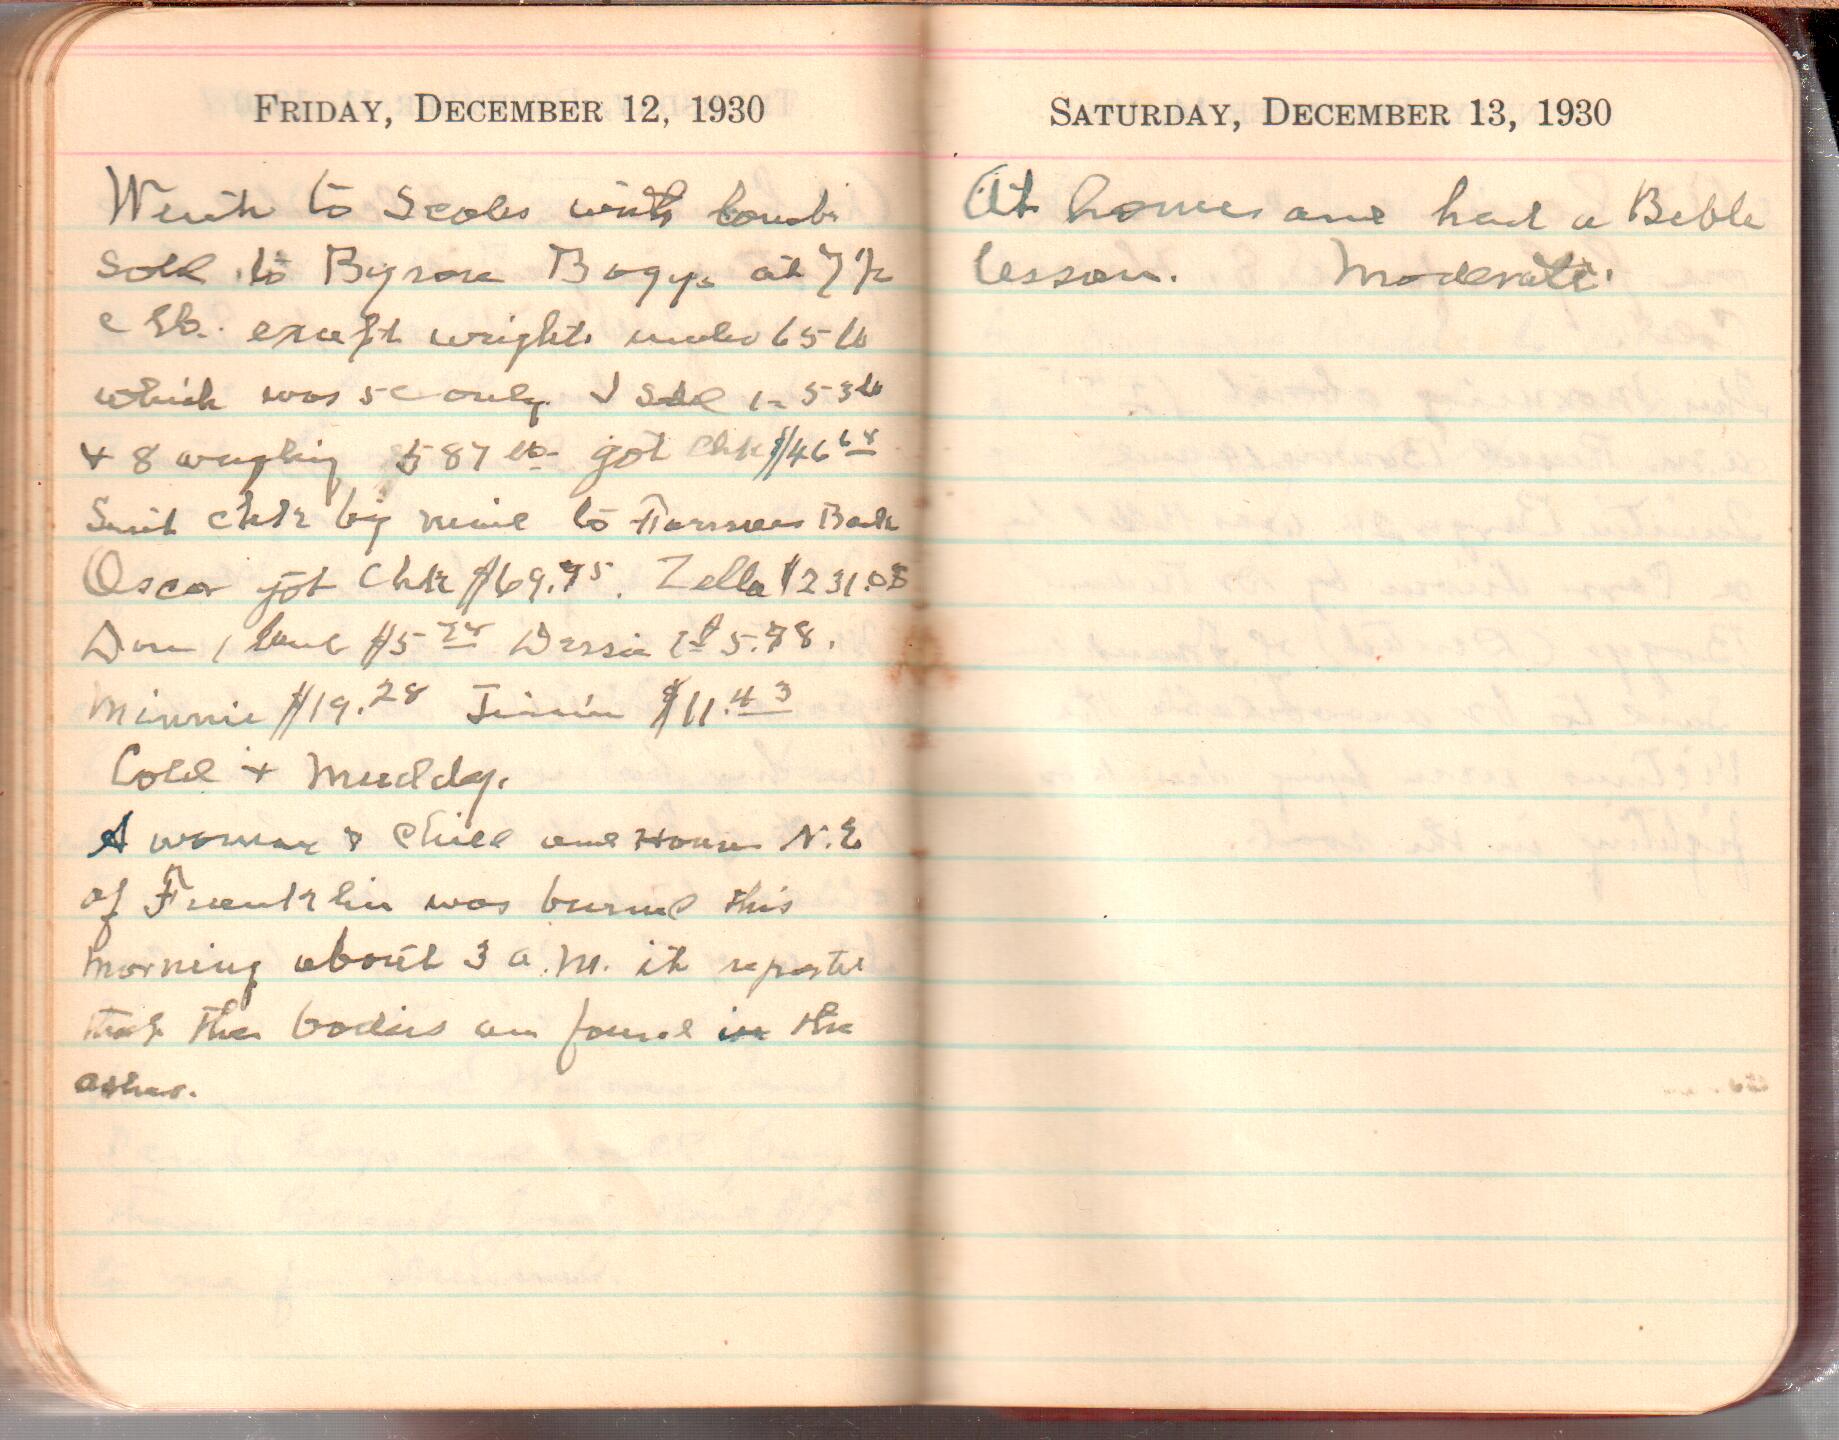 FRIDAY, DECEMBER 12, 1930
Went to Scales with lambs
Sold to Byron Boggs at 7½
c lb. except weights under 65 lb
which was 5c only I Sold 1- 53 lb
+ 8 weighing 587 lb got Chk $46 68
Sent chk by mail to Farmers Bank
Oscar got Chk $69.75. Zella $231.08
Don 1 lamb $5 78 Dessie 1 $5.78.
Minnie $19.28 Jimmie $11.43
Cold + Muddy.
A woman & Child and House N.E
of Franklin was burned this
morning about 3 a.m. it reported
that the bodies are found in the
ashes.
SATURDAY, DECEMBER 13, 1930
At home and had a Bible
lesson. Moderate.